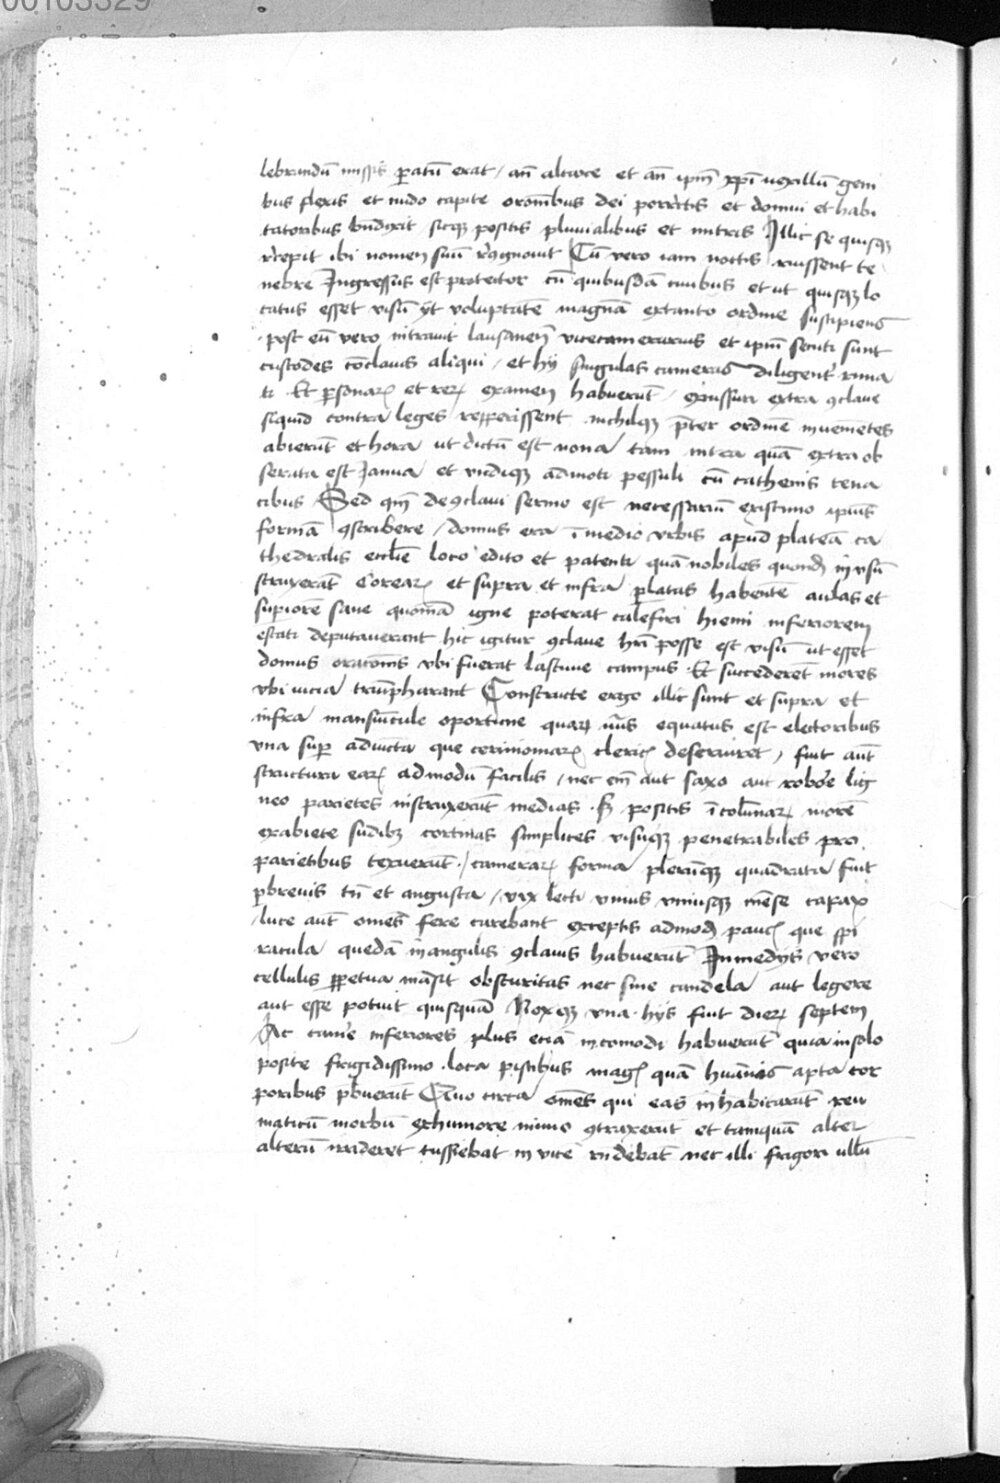 00103329
lebrandū missis paratū erat / an̄ altare et an̄ ipm̄ xpi vexillū geni
bus flexis et nudo capite orōnibus dei porrectis et domui et habi
tatoribus bn̄dixit sicqꝫ positis pluvialibus et mitris Illic se quisqꝫ
recepit ibi nomen suū recognovit Cū vero iam noctis ruissent te
nebre Ingressus est protector cū quibusdā civibus et ut quisqꝫ lo
catus esset visū it voluptatē magnā ex tanto ordine suscipiens
post eū vero intravit lausanen̄ vicecamerarius et ipm̄ secuti sunt
custodes cōclavis aliqui / et hij singulas cameras diligent rima
ti Et personaꝝ et reꝝ examen habuerūt / expulsuri extra ꝯclave
siquid contra leges repperissent nichilqꝫ pter ordinē invenietes
abierūt et hora ut dictū est nona tam intra quā extra ob
serata est Ianua et undiqꝫ admoti pessuli cū cathenis tena
cibus Sed qm̄ de ꝯclavi sermo est necessariū existimo ipius
formā ꝯscribere / domus era ī medio urbis apud plateā ca
thedralis ecclīe loco edito et patenti quā nobiles quondā in usū
struxerāt coreaꝝ et supra et infra platas habentē aulas et
supiorē sane quoniā igne poterat calefieri hiemi inferiorem
estati deputaverant hic igitur ꝯclave hr̄i posse est visū ut esset
domus orationis ubi fuerat lascivie campus Et succederēt mores
ubi vicia triūpharant Constructe ergo illic sunt et supra et
infra mansiūcule oportune quaꝝ usus equatus est electoribus
una sup adiūcta que cerimoniaꝝ clericꝭ deserviret / fuit aūt
structura eaꝝ admodū facilis / nec em̄ aut saxo aut robore lig
neo parietes instruxerūt medias sꝫ positis ī colūnaꝝ morē
ex abiete sudibꝫ cortinas simplices visuqꝫ penetrabiles pro
parietibus texuerūt / cameraꝝ forma plerūqꝫ quadrata fuit
pbrevis tn̄ et angusta / vix lecti unius uniusqꝫ mēse capax
luce aūt omēs fere carebant exceptis admodū paucꝭ que spi
racula quedā in angulis ꝯclavis habuerūt In medijs vero
cellulis ppetua māsit obscuritas nec sine candela aut legere
aut esse potuit quisquā Noxqꝫ una hijs fuit dieꝝ septem
Ac camīe inferiores plus eciā incomodi habuerūt quia in solo
posite frigidissimo loca piscibus magꝭ quā humānis apta cor
poribus pbuerūt Quo circa omēs qui eas inhabitarūt reu
maticū morbū ex humore nimio ꝯtraxerūt et tamquā alter
alterū irrideret tussiebat in vice ridebāt nec illi frigori ullū